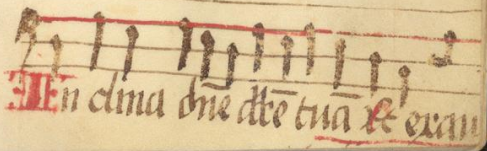 In clina dn̄e aurē tuā et exau